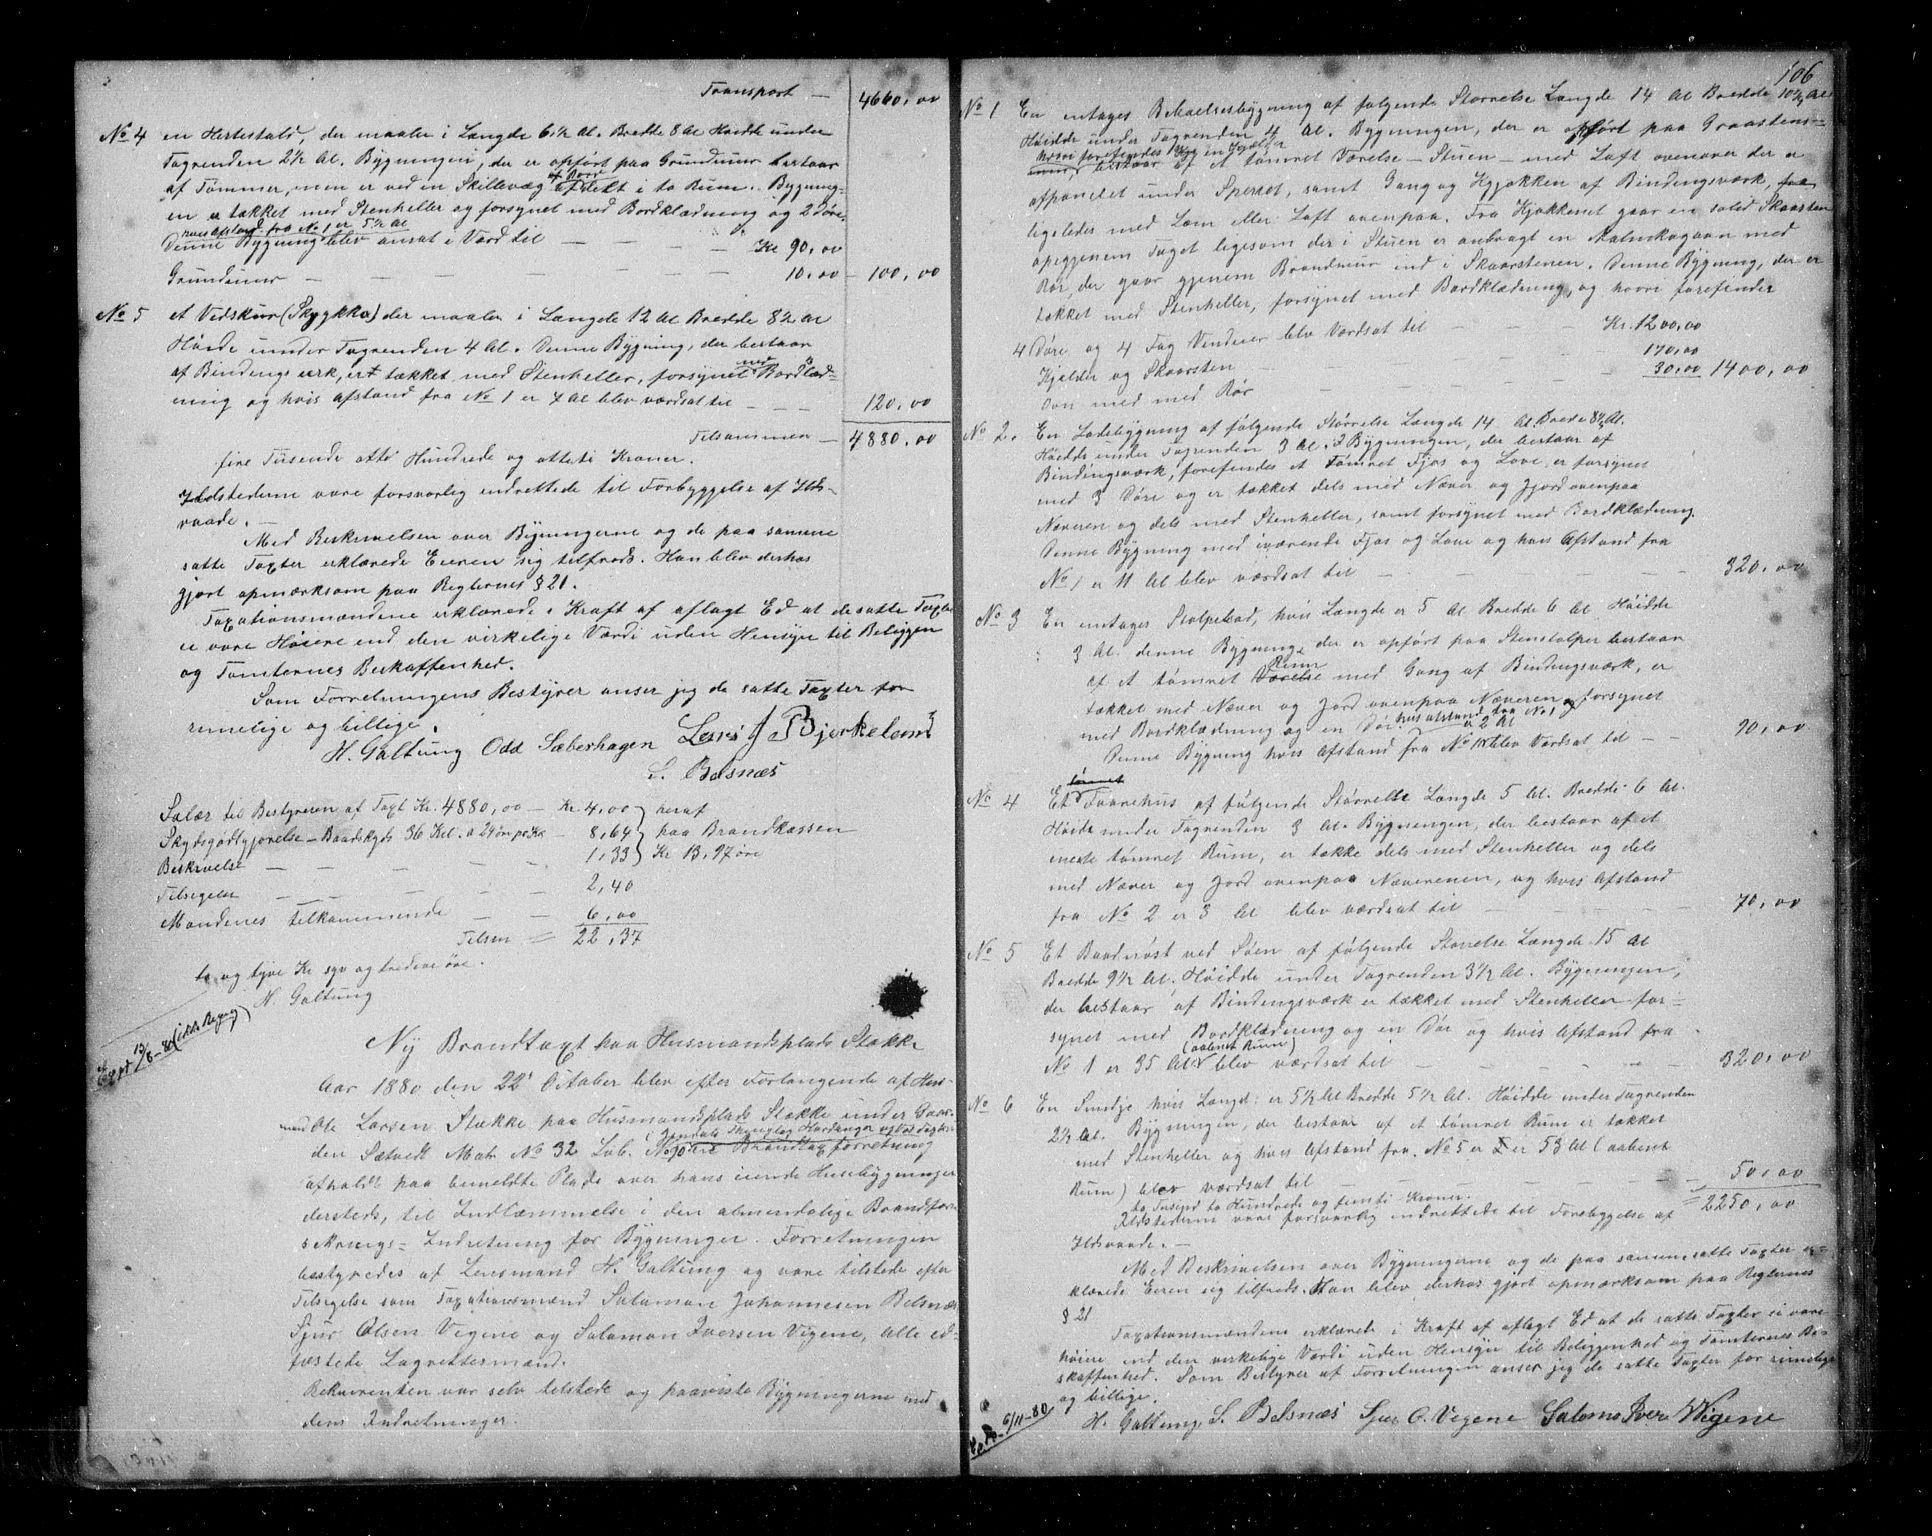 Transport — 4660,00
No 4 en Hestestald, der maaler i Længde 6 1/2 Al. Bredde 8 Al Høidde under
Tagrenden 2 1/2 Al. Bygningen, der er opført paa Grundmur bestaar
af Tømmer, men er ved en Skillevæg af Bord afdelt i to Rum. Bygning-
en er tækket med Stenheller og forsynet med Bordklædning og 2 Døre
hvis Afstand fra No 1 er 5 1/2 Al
Denne Bygning blev ansat i Værd til — — — Kr 90,00
Grundmur — — — — — 10,00 — 100,00
No 5 et Vedskur (Skykkje) der maaler i Længde 12 Al Bredde 8 1/2 Al
Høide under Tagrenden 4 Al. Denne Bygning, der bestaar
af Bindingsverk, er tækket med Stenheller, forsynet med Bordklæd-
ning og hvis Afstand fra No 1 er 4 Al blev værdsat til — — — 120,00
Tilsammen — 4880,00
fire Tusende otte Hundrede og otteti Kroner.
Ildstederne vare forsvarlig indrettede til Forbyggelse af Ilds-
vaade. —
Med Beskrivelsen over Bygningerne og de paa samme
satte Taxter erklærede Eieren sig tilfreds. Han blev derhos
gjort opmærksom paa Reglernes § 21.
Taxationsmændene erklærede i Kraft af aflagt Ed at de satte Taxter
ei vare Høiere end den virkelige Værdi uden Hensyn til Beliggen
og Tomternes Beskaffenhed.
Som Forretningens Bestyrer anser jeg de satte Taxter for
rimelige og billige.
H. Galtung Odd Sæberhagen Lars J Bjerkeland
S. Belsnæs
Salær til Bestyreren af Taxt Kr. 4880,00 — Kr. 4,00 } heraf
Skydsgodtgjørelse — Baadskyds 36 Kil. a 24 ør pr Kil — 8,64 } paa Brandkassen
Beskrivelse — — — 1,33 } Kr 13,97 øre
Tilsigelse — — — 2,40
Mændenes tilkommende — — 6,00
Tilsm = 22,37
to og tyve Kr syv og tredeve øre.
H. Galtung
Ny Brandtaxt paa Husmandsplads Stække
Aar 1880 den 22' October blev efter Forlangende af Hus-
mand Ole Larsen Stække paa Husmandsplads Stække under Gaar-
den Sætvedt Matr No 32 Løb. No 70
afholdt paa bemeldte Plads over hans eiende Husebygninger
dersteds, til Indlæmmelse i den almendelige Brandfor-
sikrings-Indretning for Bygninger. Forretningen
bestyredes af Lensmand H. Galtung og vare tilstede efter
Tilsigelse som Taxationsmænd Salamon Johannesen Belsnæs
Sjur Olsen Vigene og Salamon Iversen Vigene, alle ed-
fæstede Lagrettesmænd.
Rekvirenten var selv tilstede og paaviste Bygningerne med
dens Indretninger.
106
No 1 En entages Bekvælsesbygning af følgende Størrelse Længde 14 Al Bredde 10 1/2 Al
Høidde under Tagrenden 4 Al. Bygningen, der er opført paa Graastens-
mur, bestaar af et tømret Værelse — Stuen — med Loft ovenover der er
afpanelet under Sperset, samt Gang og Kjøkken af Bindingsværk,
ligeledes med Læm eller Loft ovenpaa. Fra Kjøkkenet gaar en solid Skaarsten
opigjenem Taget ligesom der i Stuen er anbragt en Malmkagoon med
Rør der gaar gjenem Brandmur ind i Skaarstenen. Denne Bygning, der er
tækket med Stenheller, forsynet med Bordklædning, og hvore forefinder
4 Døre og 4 Fag Vinduer blev Værdsat til — — — Kr. 1200,00
Kjelder og Skaarsten — — — 170,00
Ovn med med Rør — — — 30,00 1400,00
No 2. En Ladebygning af følgende Størrelse Længde 14 Al. Bredde 8 1/2 Al.
Høidde under Tagrenden 3 Al. Bygningen, der bestaar af
Bindingsværk, forefindes et Tømret Fjøs og Løve, er forsynet
med 3 Døre og er tækket dels med Næver og Jord ovenpaa
Næveren og dels med Stenheller, samt forsynet med Bordklædning.
Denne Bygning med iværende Fjøs og Løve og hvis Afstand fra
No 1 er 11 Al blev værdsat til — — — 320,00
No 3 En entages Stolpebod, hvis Længde er 5 Al Bredde 6 Al Høidde
3 Al. denne Bygning, der er opført paa Stenstolper bestaar
af et tømret Rum med Gang af Bindingsværk, er
tækket med Næver og Jord ovenpaa Næveren og forsynet
med Bordklædning og en Dør hvis afstand fra No 1 er 2 Al
Denne Bygning hvis Afstand fra No 1 blev Værdsat til — — 90,00
No 4 Et tømret Tørrehus af følgende Størrelse Længde 5 Al. Bredde 6 Al.
Høide under Tagrenden 3 Al. Bygningen, der bestaar af et
eneste tømret Rum, er tække dels med Stenheller og dels
med Næver og Jord ovenpaa Næverenen, og hvis Afstand
fra No 2 er 3 Al blev værdsat til — — — 70,00
No 5 Et Baadnøst ved Søen af følgende Størrelse Længde 15 Al
Bredde 9 1/2 Al. Høidde under Tagrenden 3 1/2 Al. Bygningen,
der bestaar af Bindingsværk er tækket med Stenheller for-
synet med Bordklædning og en Dør og hvis Afstand fra
No 1 er 35 Al (aabent Rum) blev værdsat til — — — 320,00
No 6 En Smidje hvis Længd: er 5 1/2 Al Bredde 5 1/2 Al. Høidde under Tagrenden
2 1/2 Al. Bygningen, der bestaar af et tømret Rum er tækket
med Stenheller og hvis Afstand fra No 5 er 53 Al (aabent
Rum) blev værdsat til — — — 50,00
to Tusend to Hundrede og femti Kroner. = 2250,00
Ildstederne vare forsvarlig indrettede til Forebyggelse af
Ildsvaade. —
Med Beskrivelsen over Bygningerne og de paa samme satte Taxter er-
klærede Eieren sig tilfreds. Han blev derhos gjort opmærksom paa Reglernes
§ 21
Taxationsmændene erklærede i Kraft af aflagt Ed at de satte Taxter ei vare
høiere end den virkelige Værdi uden Hensyn til Beliggenhed og Tomternes Be-
skaffenhed. Som Bestyrer af Forretningen anser jeg de satte Taxter for rimelige
og billige.
6/11-80
H. Galtung, S. Belsnæs Sjur O. Vigene Salomo Iver Wigene